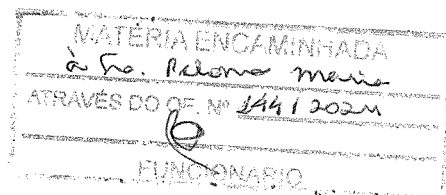 MATÉRIA ENCAMINHADA
à Sra. Paloma Maria
ATRAVÉS DO OF. Nº 144/2024
FUNCIONÁRIO